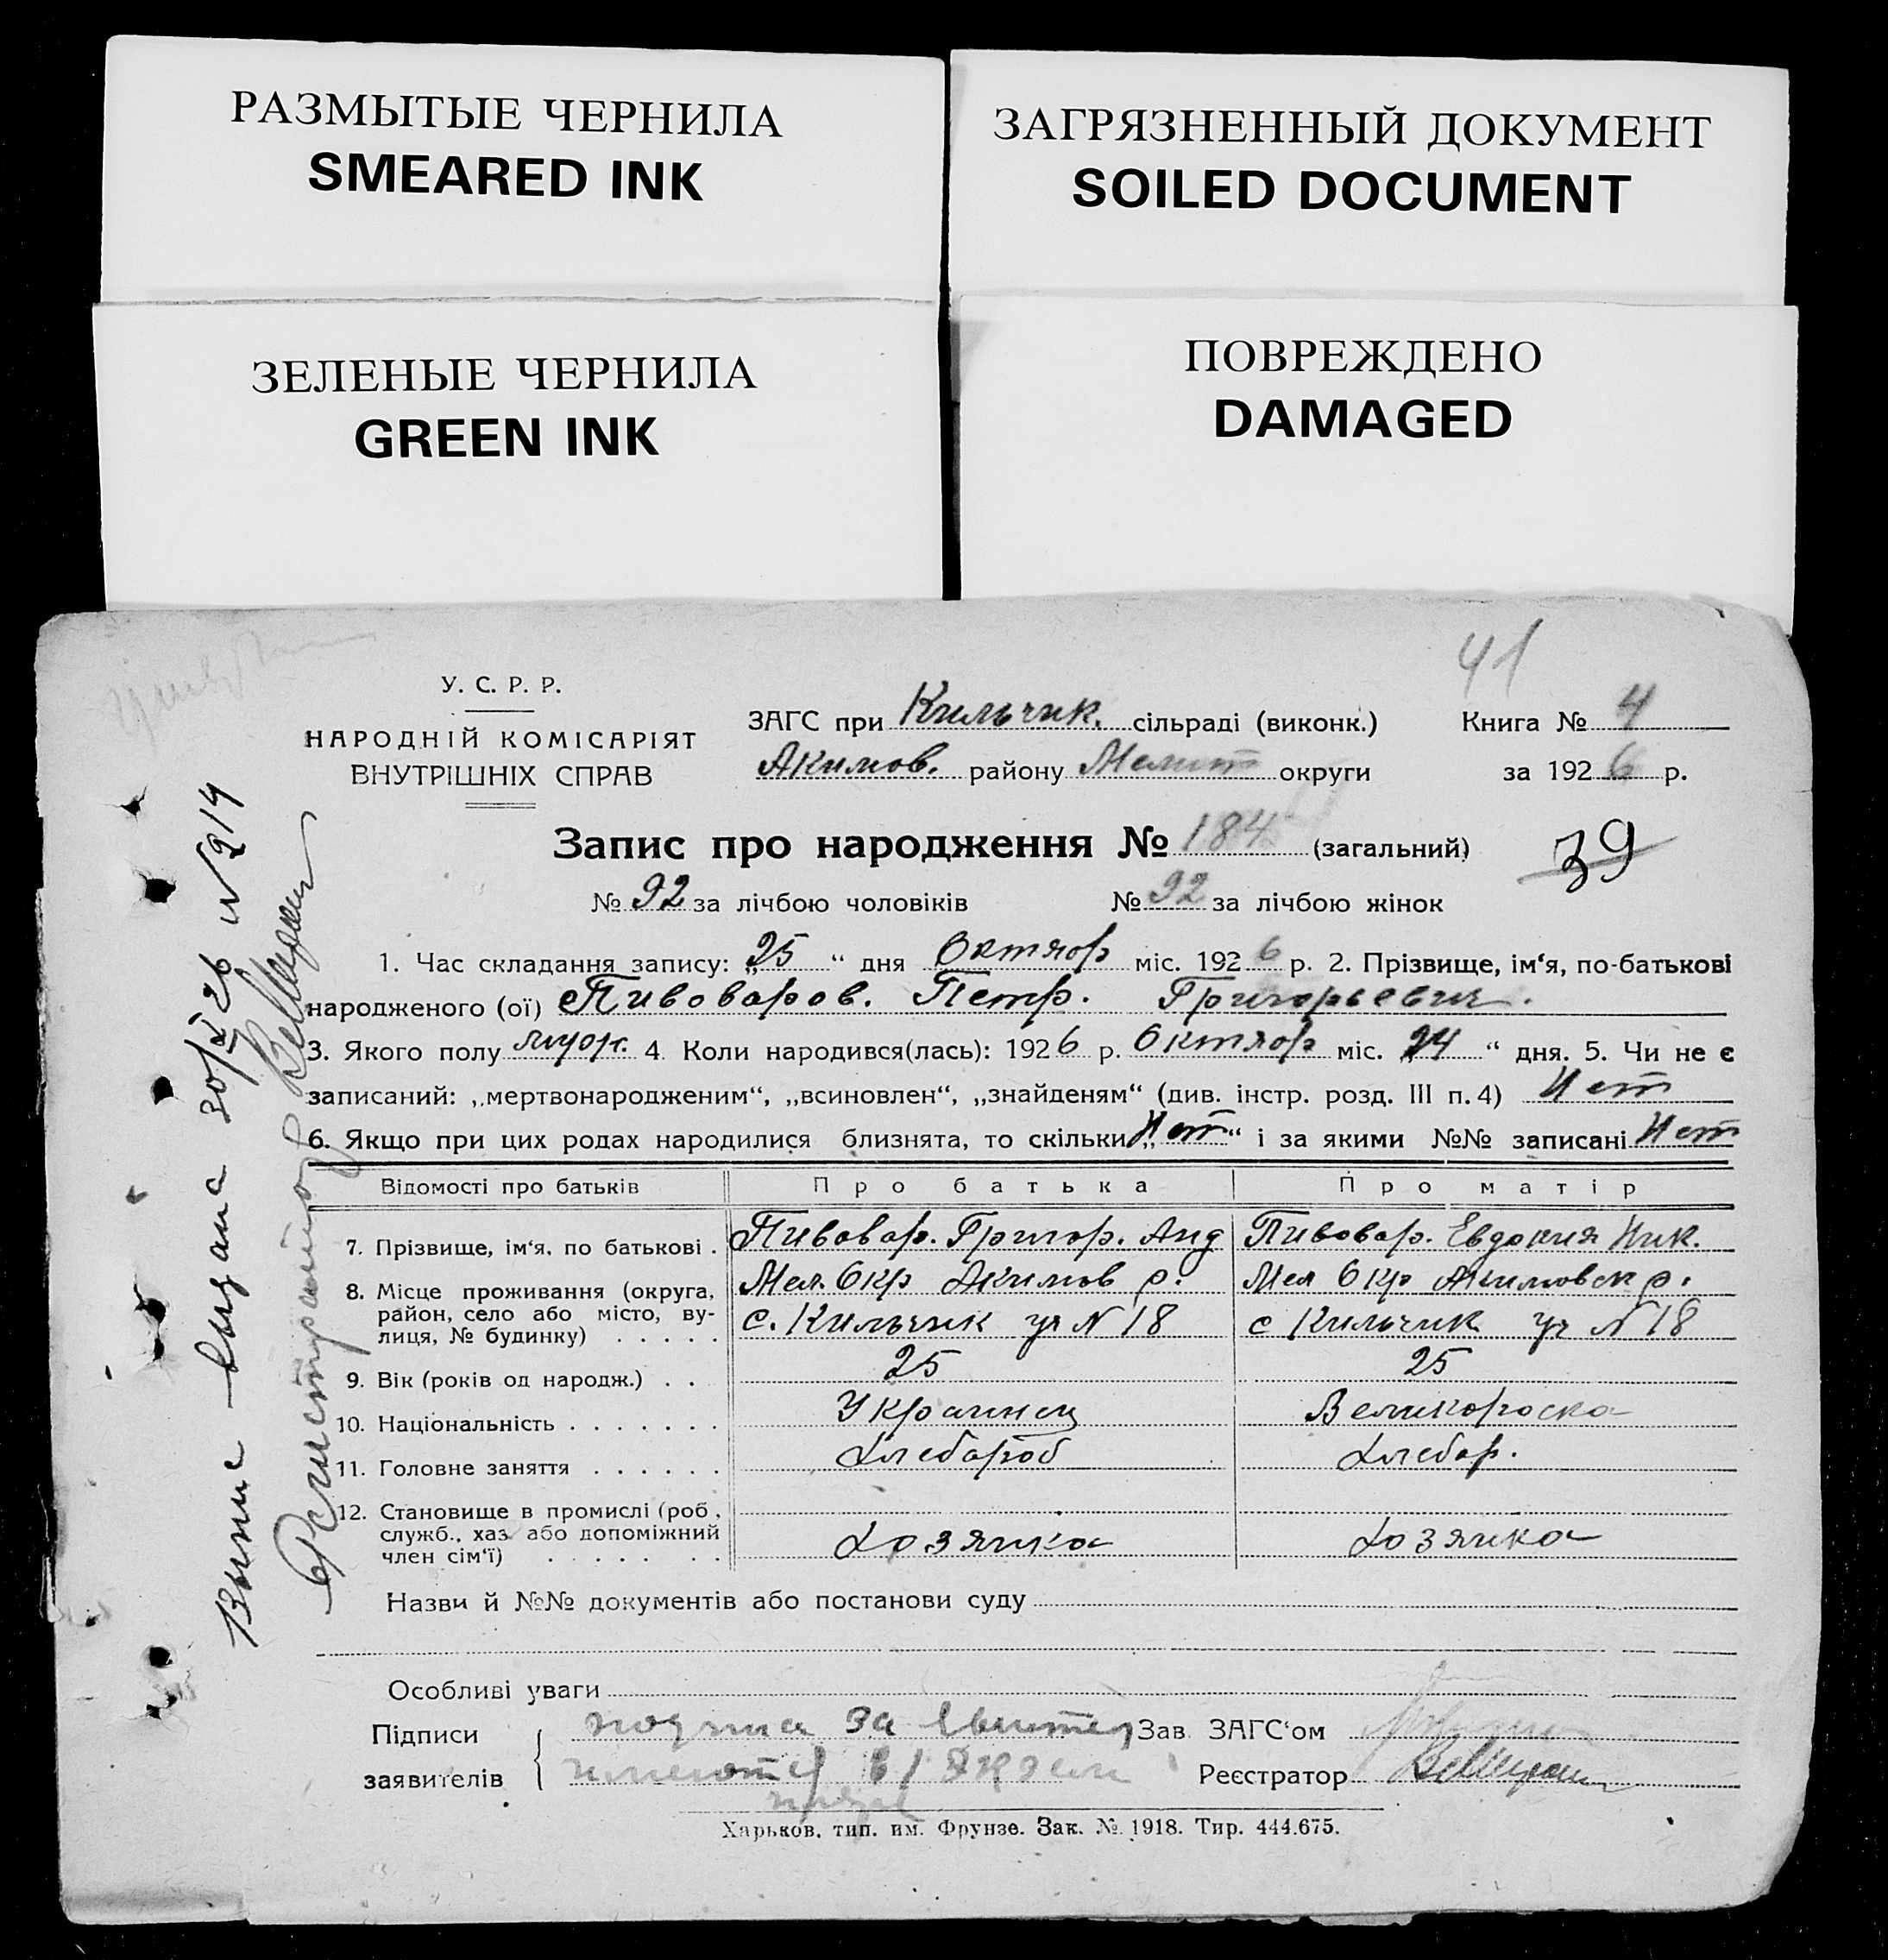 РАЗМЫТЫЕ ЧЕРНИЛА
SMEARED INK
ЗАГРЯЗНЕННЫЙ ДОКУМЕНТ
SOILED DOCUMENT
ЗЕЛЕНЫЕ ЧЕРНИЛА
GREEN INK
ПОВРЕЖДЕНО
DAMAGED
41
У. С. Р. Р.
НАРОДНІЙ КОМІСАРІЯТ
ВНУТРІШНІХ СПРАВ
ЗАГС при Кильчик. сільраді (виконк.) Книга № 4
Акимов. району Мелит округи за 1926 р.
Запис про народження № 184 (загальний) 39
№ 92 за лічбою чоловіків № 92 за лічбою жінок
1. Час складання запису: „25“ дня Октяор міс. 1926 р. 2. Прізвище, ім'я, по-батькові
народженого (ої) Пивоваров. Петр. Григорьевич.
3. Якого полу муж. 4. Коли народився(лась): 1926 р. Октяор міс. „24“ дня. 5. Чи не є
записаний: „мертвонародженим“, „всиновлен“, „знайденям“ (див. інстр. розд. III п. 4) Нет
6. Якщо при цих родах народилися близнята, то скільки „Нет“ і за якими №№ записані Нет
Відомості про батьків Про батька Про матір
7. Прізвище, ім'я, по батькові . Пивовар. Григор. Анд Пивовар. Евдокия Ник.
8. Місце проживання (округа, район, село або місто, вулиця, № будинку) . . . . . Мел. Окр Акимов р. с. Кильчик уч N 18 Мел Окр Акимовск р. с Кильчик уч N 18
9. Вік (років од народж.) . . 25 25
10. Національність . . . . . . . Украинец Великороска
11. Головне заняття . . . . . . Хлебороб Хлебор.
12. Становище в промислі (роб., служб., хаз. або допоміжний член сім'ї) . . . . . . . Хозяика Хозяика
Назви й №№ документів або постанови суду
Особливі уваги
Підписи
заявителів
Зав. ЗАГС'ом
Реєстратор
Харьков. тип. им. Фрунзе. Зак. № 1918. Тир. 444.675.
Выпис выдана 30/X 26 N 214
Регистратор